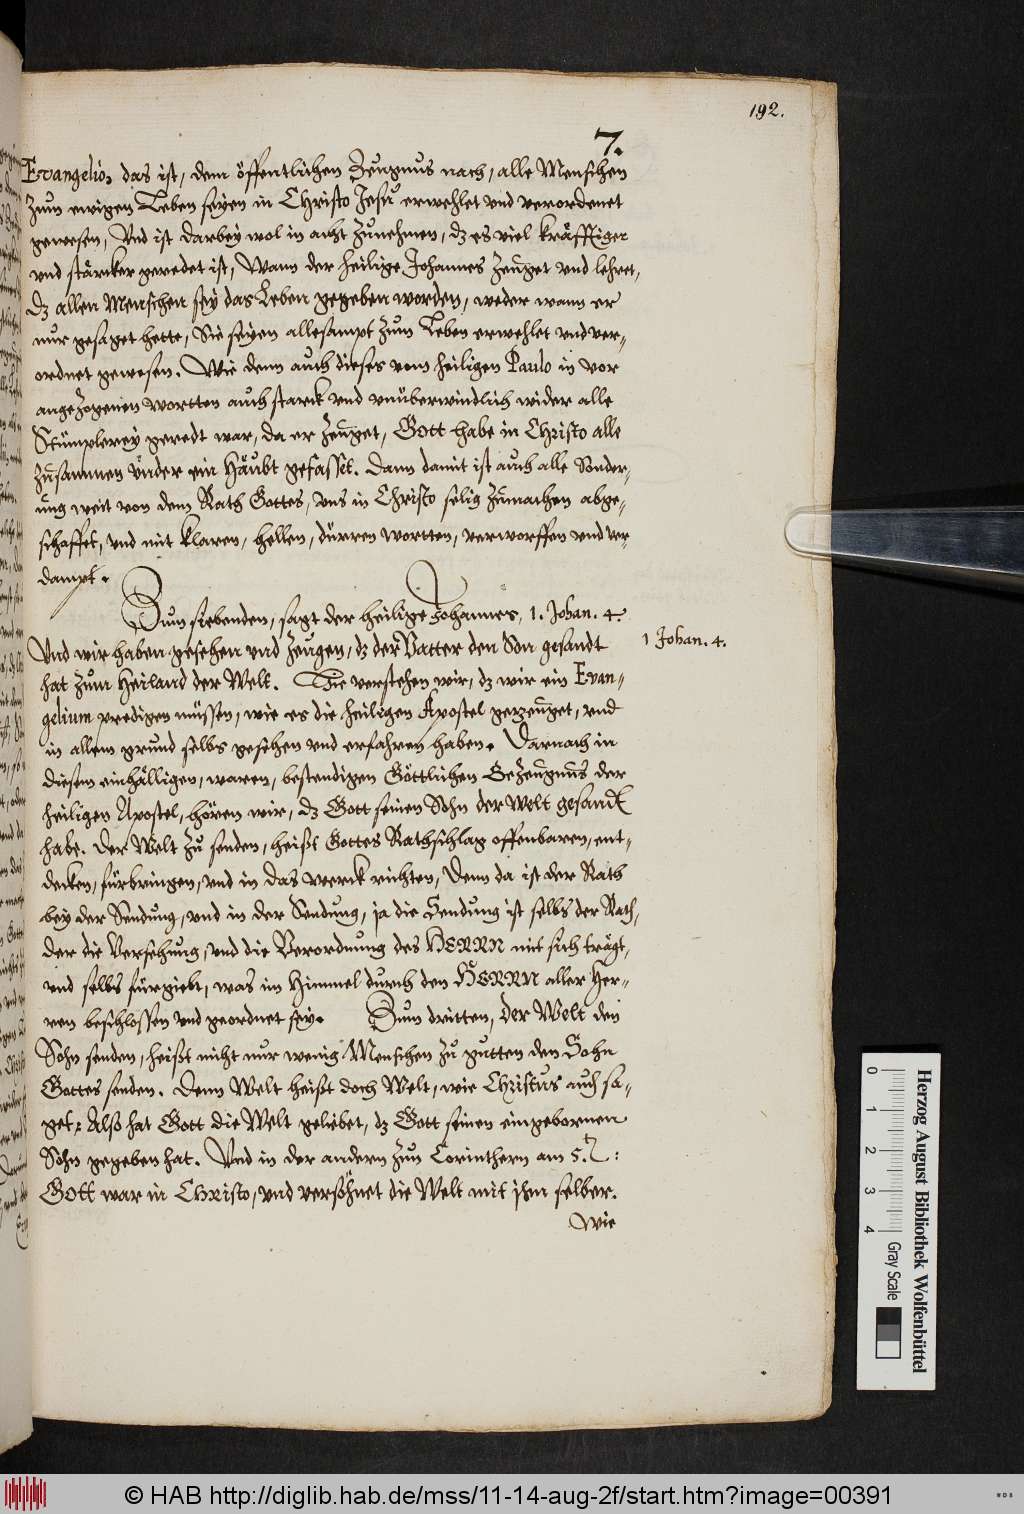 192.
7.
Evangelio, das ist, dem öffentlichen Zeugnus nach, alle Menschen
zum ewigen Leben seyen in Christo Jesu erwehlet vnd verordenet
gewesen, Vnd ist darbey wol in acht zunehmen, dz es viel kräfftiger
vnd stärcker geredet ist, Wann der heilige Johannes zeuget vnd lehret,
dz allen Menschen sey das Leben gegeben worden, weder wann er
nur gesaget hette, Sie seyen allesampt zum Leben erwehlet vnd ver-
ordnet gewesen. Wie dann auch dieses vom heiligen Paulo in vor
angezogenen wortten auch starck vnd vnüberwindlich wider alle
Stümplerey geredt war, da er zeuget, Gott habe in Christo alle
zusammen vnder ein Häubt gefasset. Dann damit ist auch alle Sonder-
ung weit von dem Rath Gottes, vns in Christo selig zumachen abge-
schaffet, vnd mit klaren, hellen, dürren wortten, verworffen vnd ver-
dampt.
Zum siebenden, sagt der heilige Johannes, 1. Johan. 4.
Vnd wir haben gesehen vnd zeugen, dz der Vatter den Son gesandt
1 Johan. 4.
hat zum Heiland der Welt. Hie verstehen wir, dz wir ein Evan-
gelium predigen müssen, wie es die heiligen Apostel gezeuget, vnd
in allem grund selbs gesehen vnd erfahren haben. Darnach in
diesem einhälligen, waren, bestendigen Göttlichen Gezeugnus der
heiligen Apostel, hören wir, dz Gott seinen Sohn der Welt gesandt
habe. Der Welt zu senden, heißt Gottes Rathschlag offenbaren, ent-
decken, fürbringen, vnd in das werck richten, Denn da ist der Rath
bey der Sendung, vnd in der Sendung, ja die Sendung ist selbs der Rath,
der die Versehung, vnd die Verordnung des HERRN mit sich trägt,
vnd selbs fürgiebt, was im Himmel durch den HERRN aller Her-
ren beschlossen vnd geordnet sey. Zum dritten, der Welt den
Sohn senden, heißt nicht nur wenig Menschen zu gutten den Sohn
Gottes senden. Denn Welt heißt doch Welt, wie Christus auch sa-
get: Also hat Gott die Welt geliebet, dz Gott seinen eingebornen
Sohn gegeben hat. Vnd in der andern zun Corinthern am 5.
Gott war in Christo, vnd versöhnet die Welt mit jhm selber.
Wie
Herzog August Bibliothek Wolfenbüttel
0 1 2 3 4 Gray Scale
© HAB http://diglib.hab.de/mss/11-14-aug-2f/start.htm?image=00391